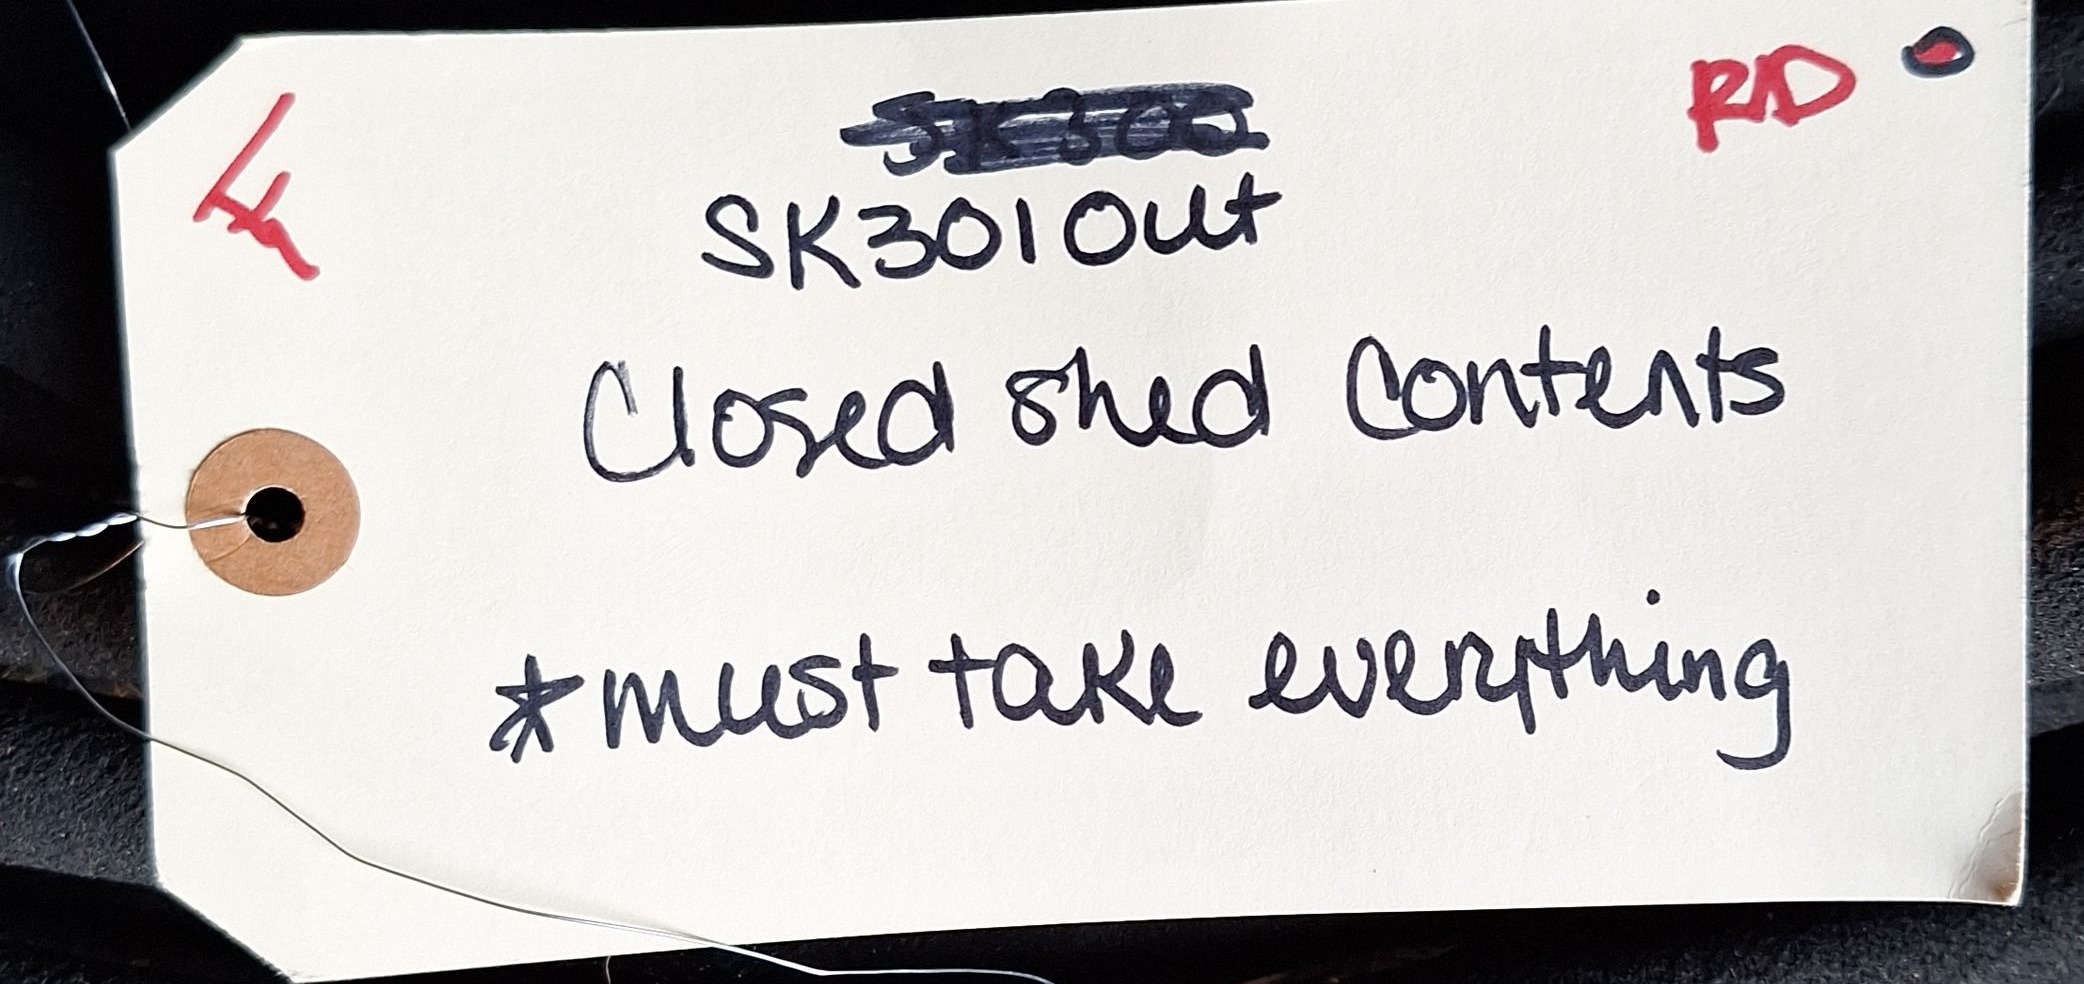 RD
SK301Out
Closed shed contents
*must take everything